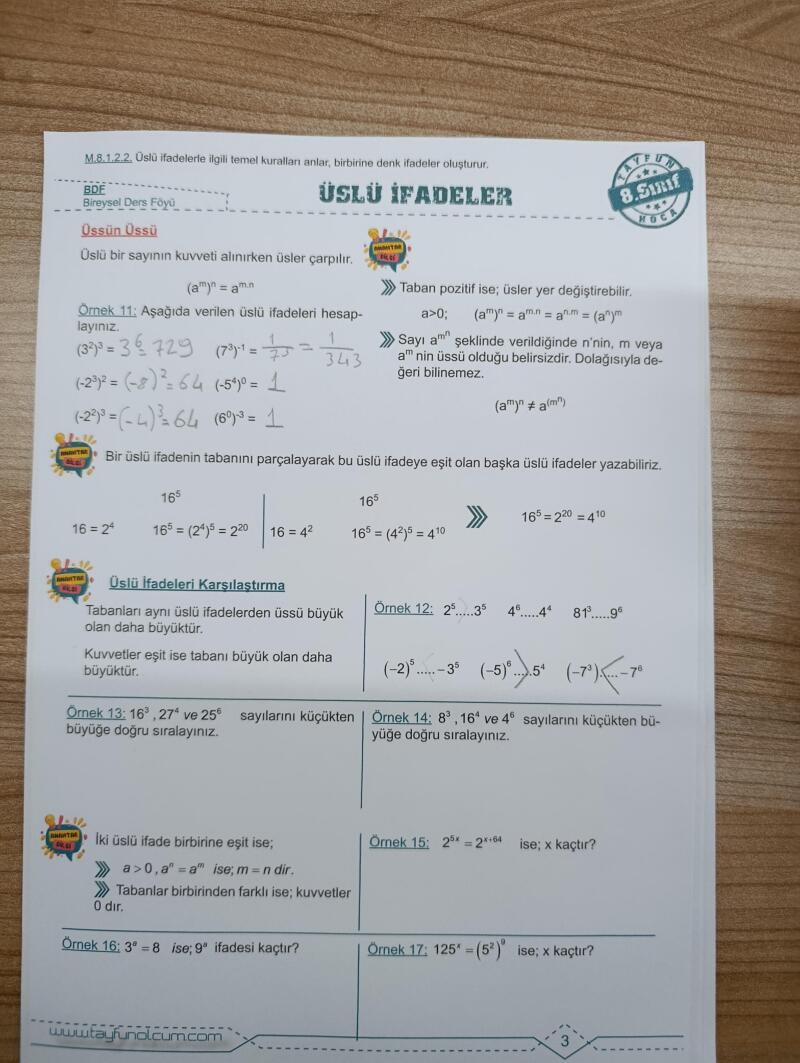 M.8.1.2.2. Üslü ifadelerle ilgili temel kuralları anlar, birbirine denk ifadeler oluşturur.
BDF
Bireysel Ders Föyü
ÜSLÜ İFADELER
TAYFUN
8.Sınıf
HOCA
Üssün Üssü
Üslü bir sayının kuvveti alınırken üsler çarpılır.
(aᵐ)ⁿ = aᵐ·ⁿ
Örnek 11: Aşağıda verilen üslü ifadeleri hesap-
layınız.
(3²)³ = 3⁶ = 729 (7³)⁻¹ = 1/7³ = 1/343
(-2³)² = (-8)² = 64 (-5⁴)⁰ = 1
(-2²)³ = (-4)³ = 64 (6⁰)⁻³ = 1
ANAHTAR
BİLGİ
Taban pozitif ise; üsler yer değiştirebilir.
a>0; (aᵐ)ⁿ = aᵐ·ⁿ = aⁿ·ᵐ = (aⁿ)ᵐ
Sayı a^m^n şeklinde verildiğinde n'nin, m veya
aᵐ nin üssü olduğu belirsizdir. Dolağısıyla de-
ğeri bilinemez.
(aᵐ)ⁿ ≠ a^(mⁿ)
ANAHTAR
BİLGİ
Bir üslü ifadenin tabanını parçalayarak bu üslü ifadeye eşit olan başka üslü ifadeler yazabiliriz.
16⁵
16 = 2⁴ 16⁵ = (2⁴)⁵ = 2²⁰
16⁵
16 = 4² 16⁵ = (4²)⁵ = 4¹⁰
16⁵ = 2²⁰ = 4¹⁰
ANAHTAR
BİLGİ
Üslü İfadeleri Karşılaştırma
Tabanları aynı üslü ifadelerden üssü büyük
olan daha büyüktür.
Kuvvetler eşit ise tabanı büyük olan daha
büyüktür.
Örnek 12: 2⁵.....3⁵ 4⁶.....4⁴ 81³.....9⁶
(−2)⁵.....−3⁵ (−5)⁶.....5⁴ (−7³).....−7⁶
Örnek 13: 16³ , 27⁴ ve 25⁶ sayılarını küçükten
büyüğe doğru sıralayınız.
Örnek 14: 8³ , 16⁴ ve 4⁶ sayılarını küçükten bü-
yüğe doğru sıralayınız.
ANAHTAR
BİLGİ
İki üslü ifade birbirine eşit ise;
a > 0 , aⁿ = aᵐ ise; m = n dir.
Tabanlar birbirinden farklı ise; kuvvetler
0 dır.
Örnek 15: 2⁵ˣ = 2ˣ⁺⁶⁴ ise; x kaçtır?
Örnek 16: 3ᵃ = 8 ise; 9ᵃ ifadesi kaçtır?
Örnek 17: 125ˣ = (5²)⁹ ise; x kaçtır?
www.tayfunolcum.com
3